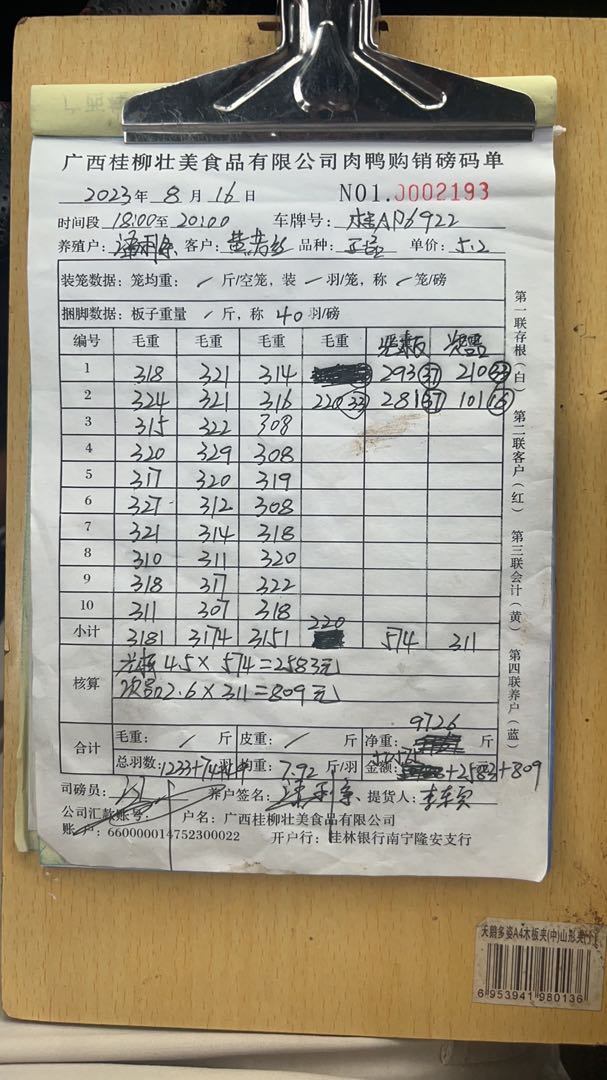 广西桂柳壮美食品有限公司肉鸭购销磅码单
2023年 8 月 16 日 NO1.0002193
时间段 18:00至 20:00 车牌号: 桂AP6922
养殖户: 客户: 品种: 单价: 5.2
装笼数据: 笼均重: / 斤/空笼, 装 / 羽/笼, 称 / 笼/磅
捆脚数据: 板子重量 / 斤, 称 40 羽/磅
编号 毛重 毛重 毛重 毛重 次品
1 318 321 314 293 37 210 23
2 324 321 316 220 33 281 37 101 16
3 315 322 308
4 320 329 308
5 317 320 319
6 327 312 308
7 321 314 318
8 310 311 320
9 318 317 322
10 311 307 318
小计 3181 3174 3151 220 574 311
核算
4.5×574=2583元
次品2.6×311=809元
9726
合计 毛重: / 斤 皮重: / 斤 净重: 斤
总羽数: 1233+74 均重: 7.92 斤/羽 金额: +2583+809
司磅员: 养户签名: 提货人:
公司汇款账号: 户名: 广西桂柳壮美食品有限公司
账 户: 660000014752300022 开户行: 桂林银行南宁隆安支行
第一联存根(白) 第二联客户(红) 第三联会计(黄) 第四联养户(蓝)
天鹅多姿A4木板夹(中)山形夹(1)
6 953941 980136